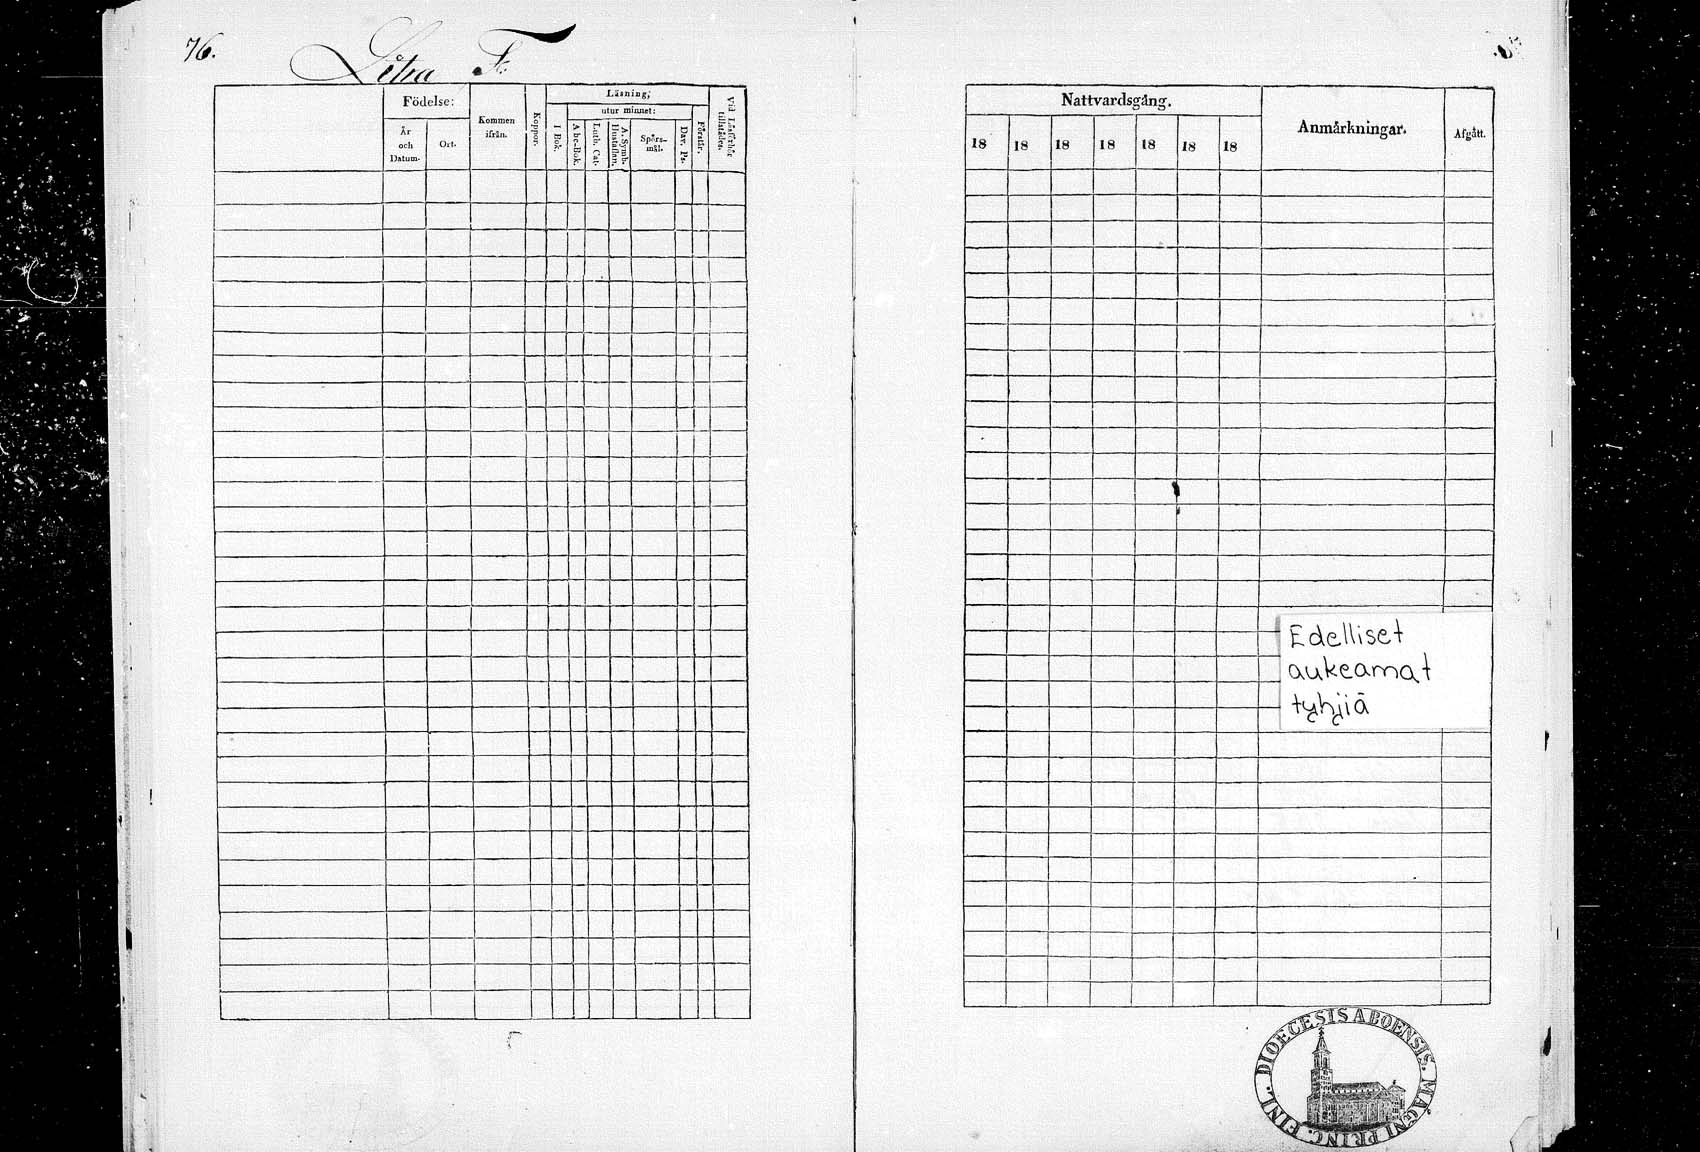 76.
Födelse:
År
och
Datum.
Ort.
Kommen
ifrån.
Koppor.
Läsning;
utur minnet:
I Bok.
Abc-Bok.
Luth. Cat.
A. Symb.
Hustaflan.
Spörs-
mål.
Dav. Ps.
Förstår.
Vid Läseförhör
tillstädes.
Nattvardsgång.
18 18 18 18 18 18 18
Anmärkningar.
Afgått.
Edelliset
aukeamat
tyhjiä
DIOECESIS ABOENSIS. MAGNI PRINC. FINL.